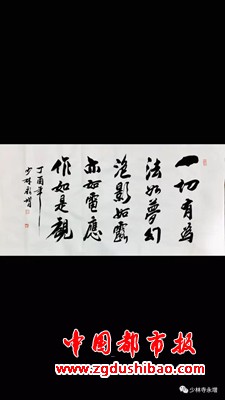 一切有為
法如夢幻
泡影如露
亦如電應
作如是觀
丁酉年
少林永增
中国都市报
www.zgdushibao.com
少林寺永增